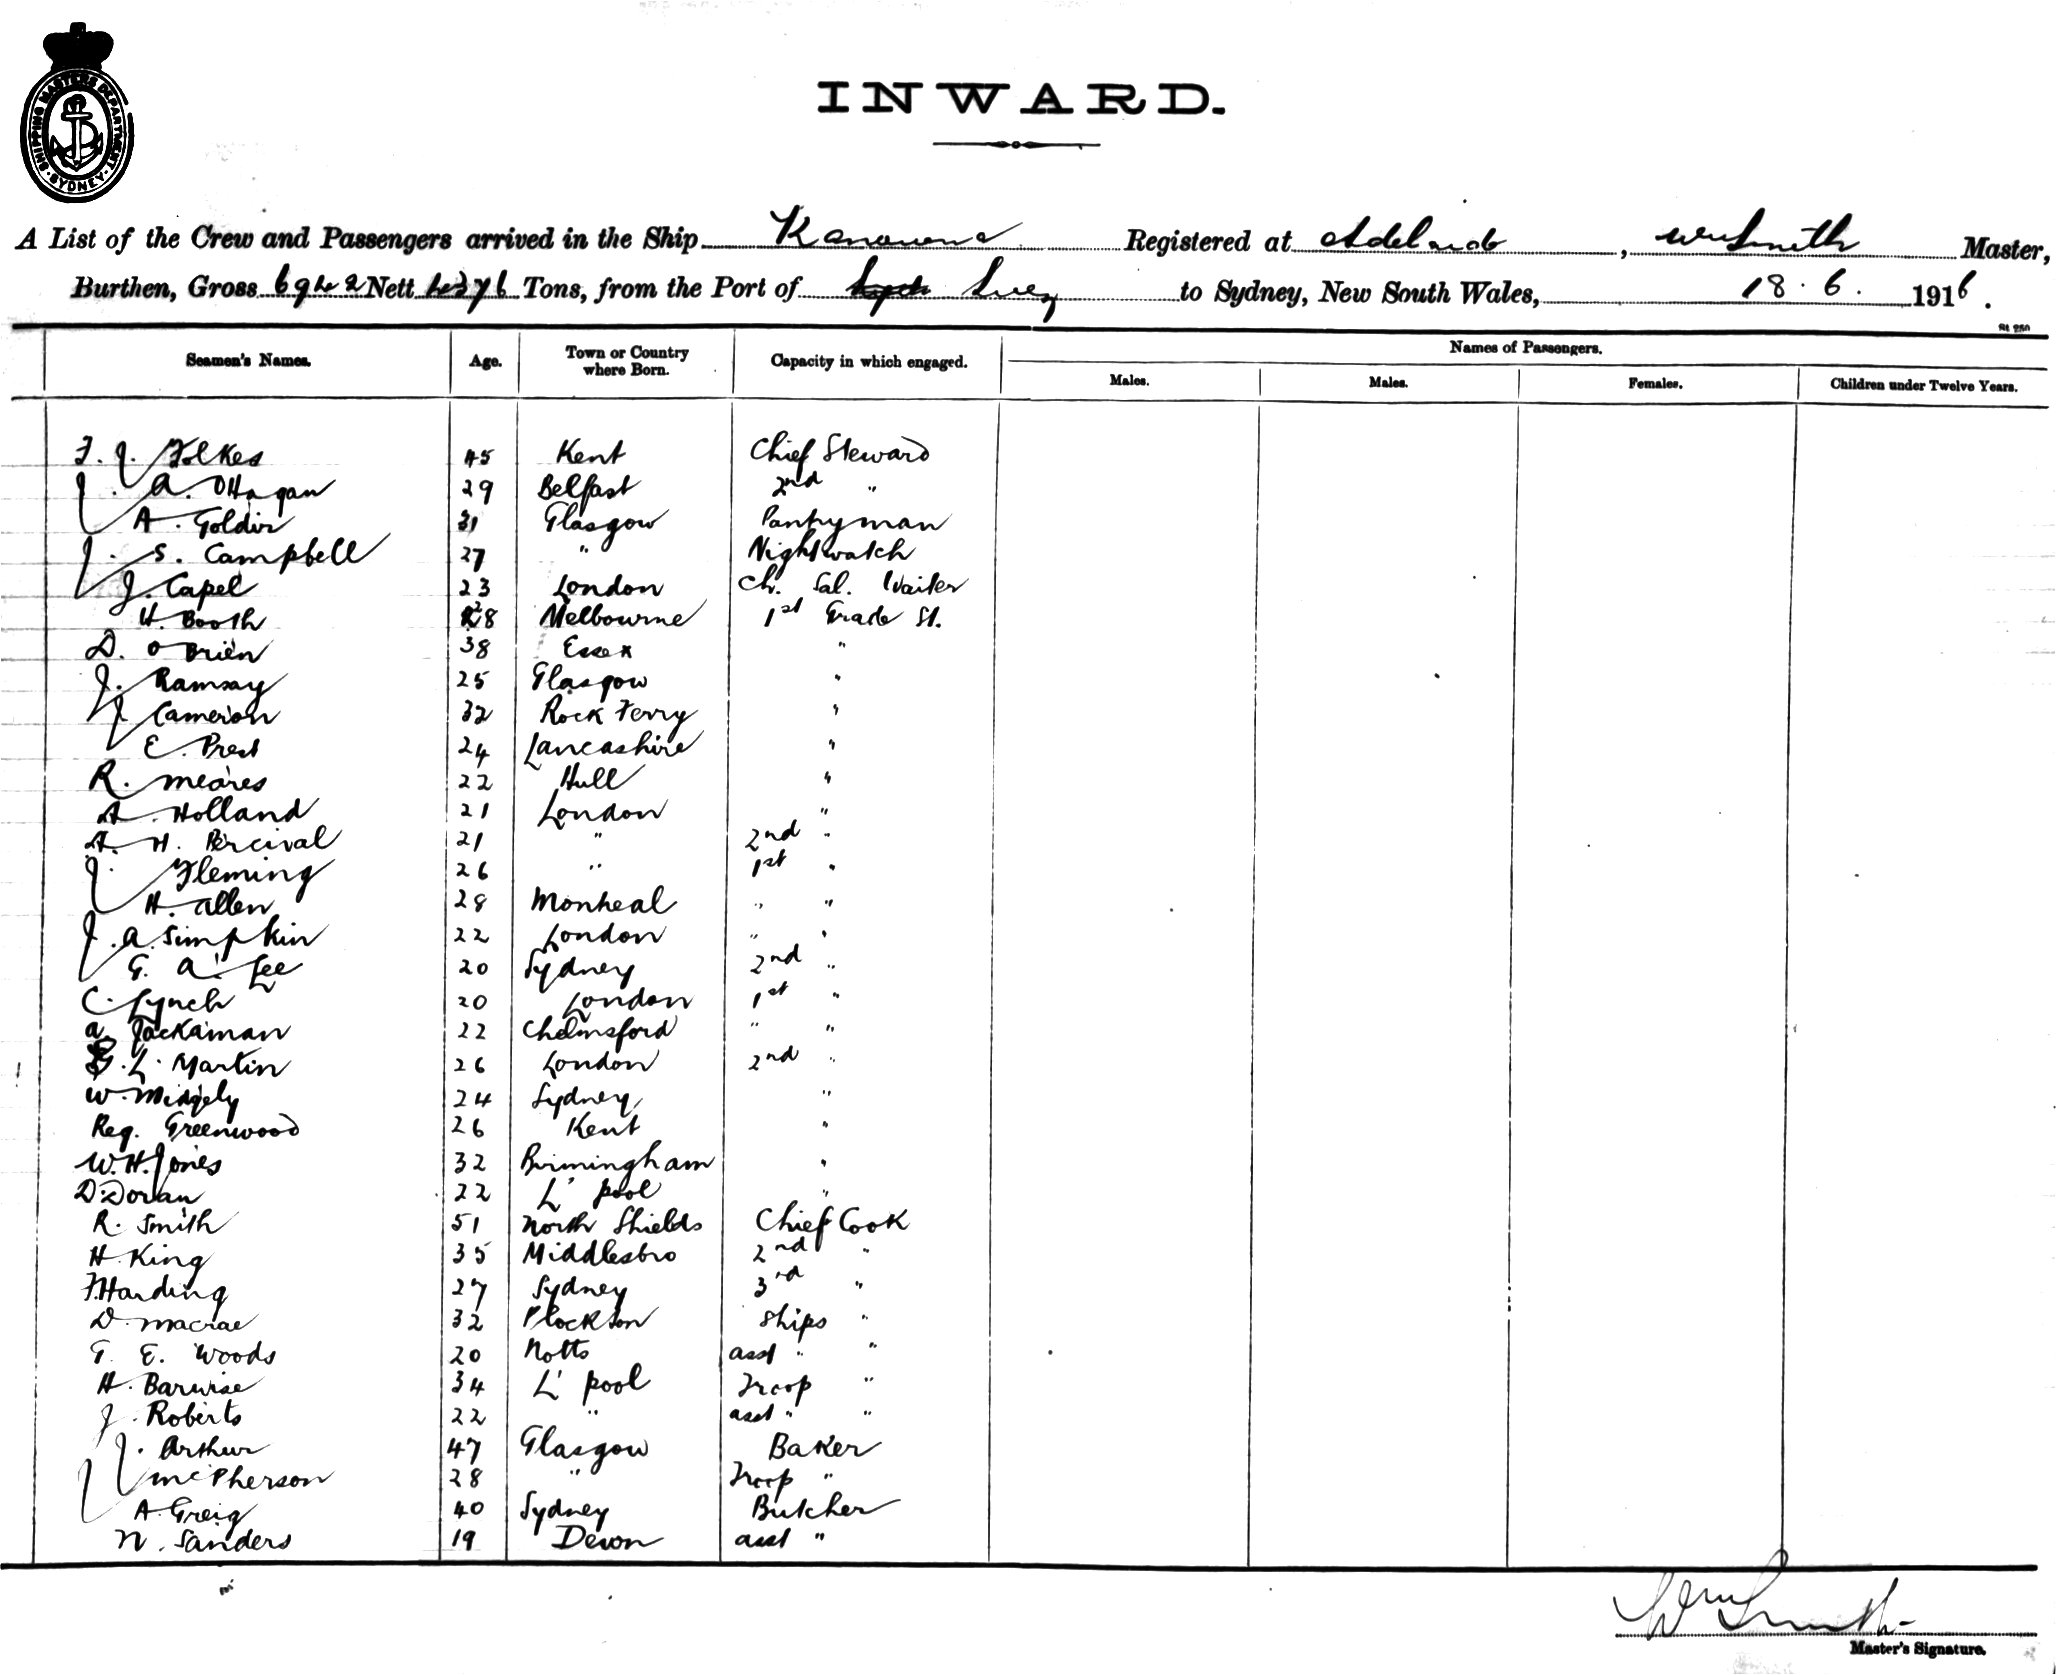 SHIPPING MASTERS DEPARTMENT SYDNEY
INWARD.
A List of the Crew and Passengers arrived in the Ship Kanowna Registered at Adelaide, Wm Smith Master,
Burthen, Gross 6942 Nett 4376 Tons, from the Port of Suez to Sydney, New South Wales, 18.6. 1916.
St 250
Seamen's Names. Age. Town or Country where Born. Capacity in which engaged. Names of Passengers.
Males. Males. Females. Children under Twelve Years.
F. J. Folkes 45 Kent Chief Steward
J. A. OHagan 29 Belfast 2nd "
A. Goldie 31 Glasgow Pantryman
J. S. Campbell 27 " Nightwatch
J. Capel 23 London Ch. Sal. Waiter
H. Booth 28 Melbourne 1st Grade St.
D. O Brien 38 Essex "
J. Ramsay 25 Glasgow "
J Cameron 32 Rock Ferry "
E. Prest 24 Lancashire "
R. Meares 22 Hull "
A. Holland 21 London "
A. H. Percival 21 " 2nd "
J. Fleming 26 " 1st "
H. Allen 28 Montreal " "
J. A. Simpkin 22 London " "
G. A. Lee 20 Sydney 2nd "
C. Lynch 20 London 1st "
A Jackaman 22 Chelmsford " "
L. Martin 26 London 2nd "
W. Midgely 24 Sydney "
Reg. Greenwood 26 Kent "
W. H. Jones 32 Birmingham "
D. Doran 22 L'pool "
R. Smith 51 North Shields Chief Cook
H King 35 Middlesbro 2nd "
F. Harding 27 Sydney 3rd "
D. Macrae 32 Plockton Ships "
G. E. Woods 20 Notts asst " "
H. Barwise 34 L'pool Troop "
J. Roberts 22 " asst " "
J. Arthur 47 Glasgow Baker
J McPherson 28 " Troop "
A. Greig 40 Sydney Butcher
N. Sanders 19 Devon asst "
Wm Smith
Master's Signature.